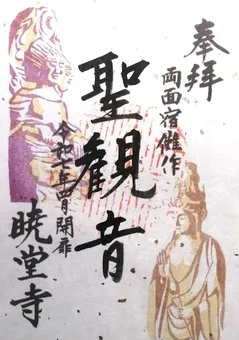 奉拝
両面宿儺作
聖観音
令和二年十月開扉
暁堂寺